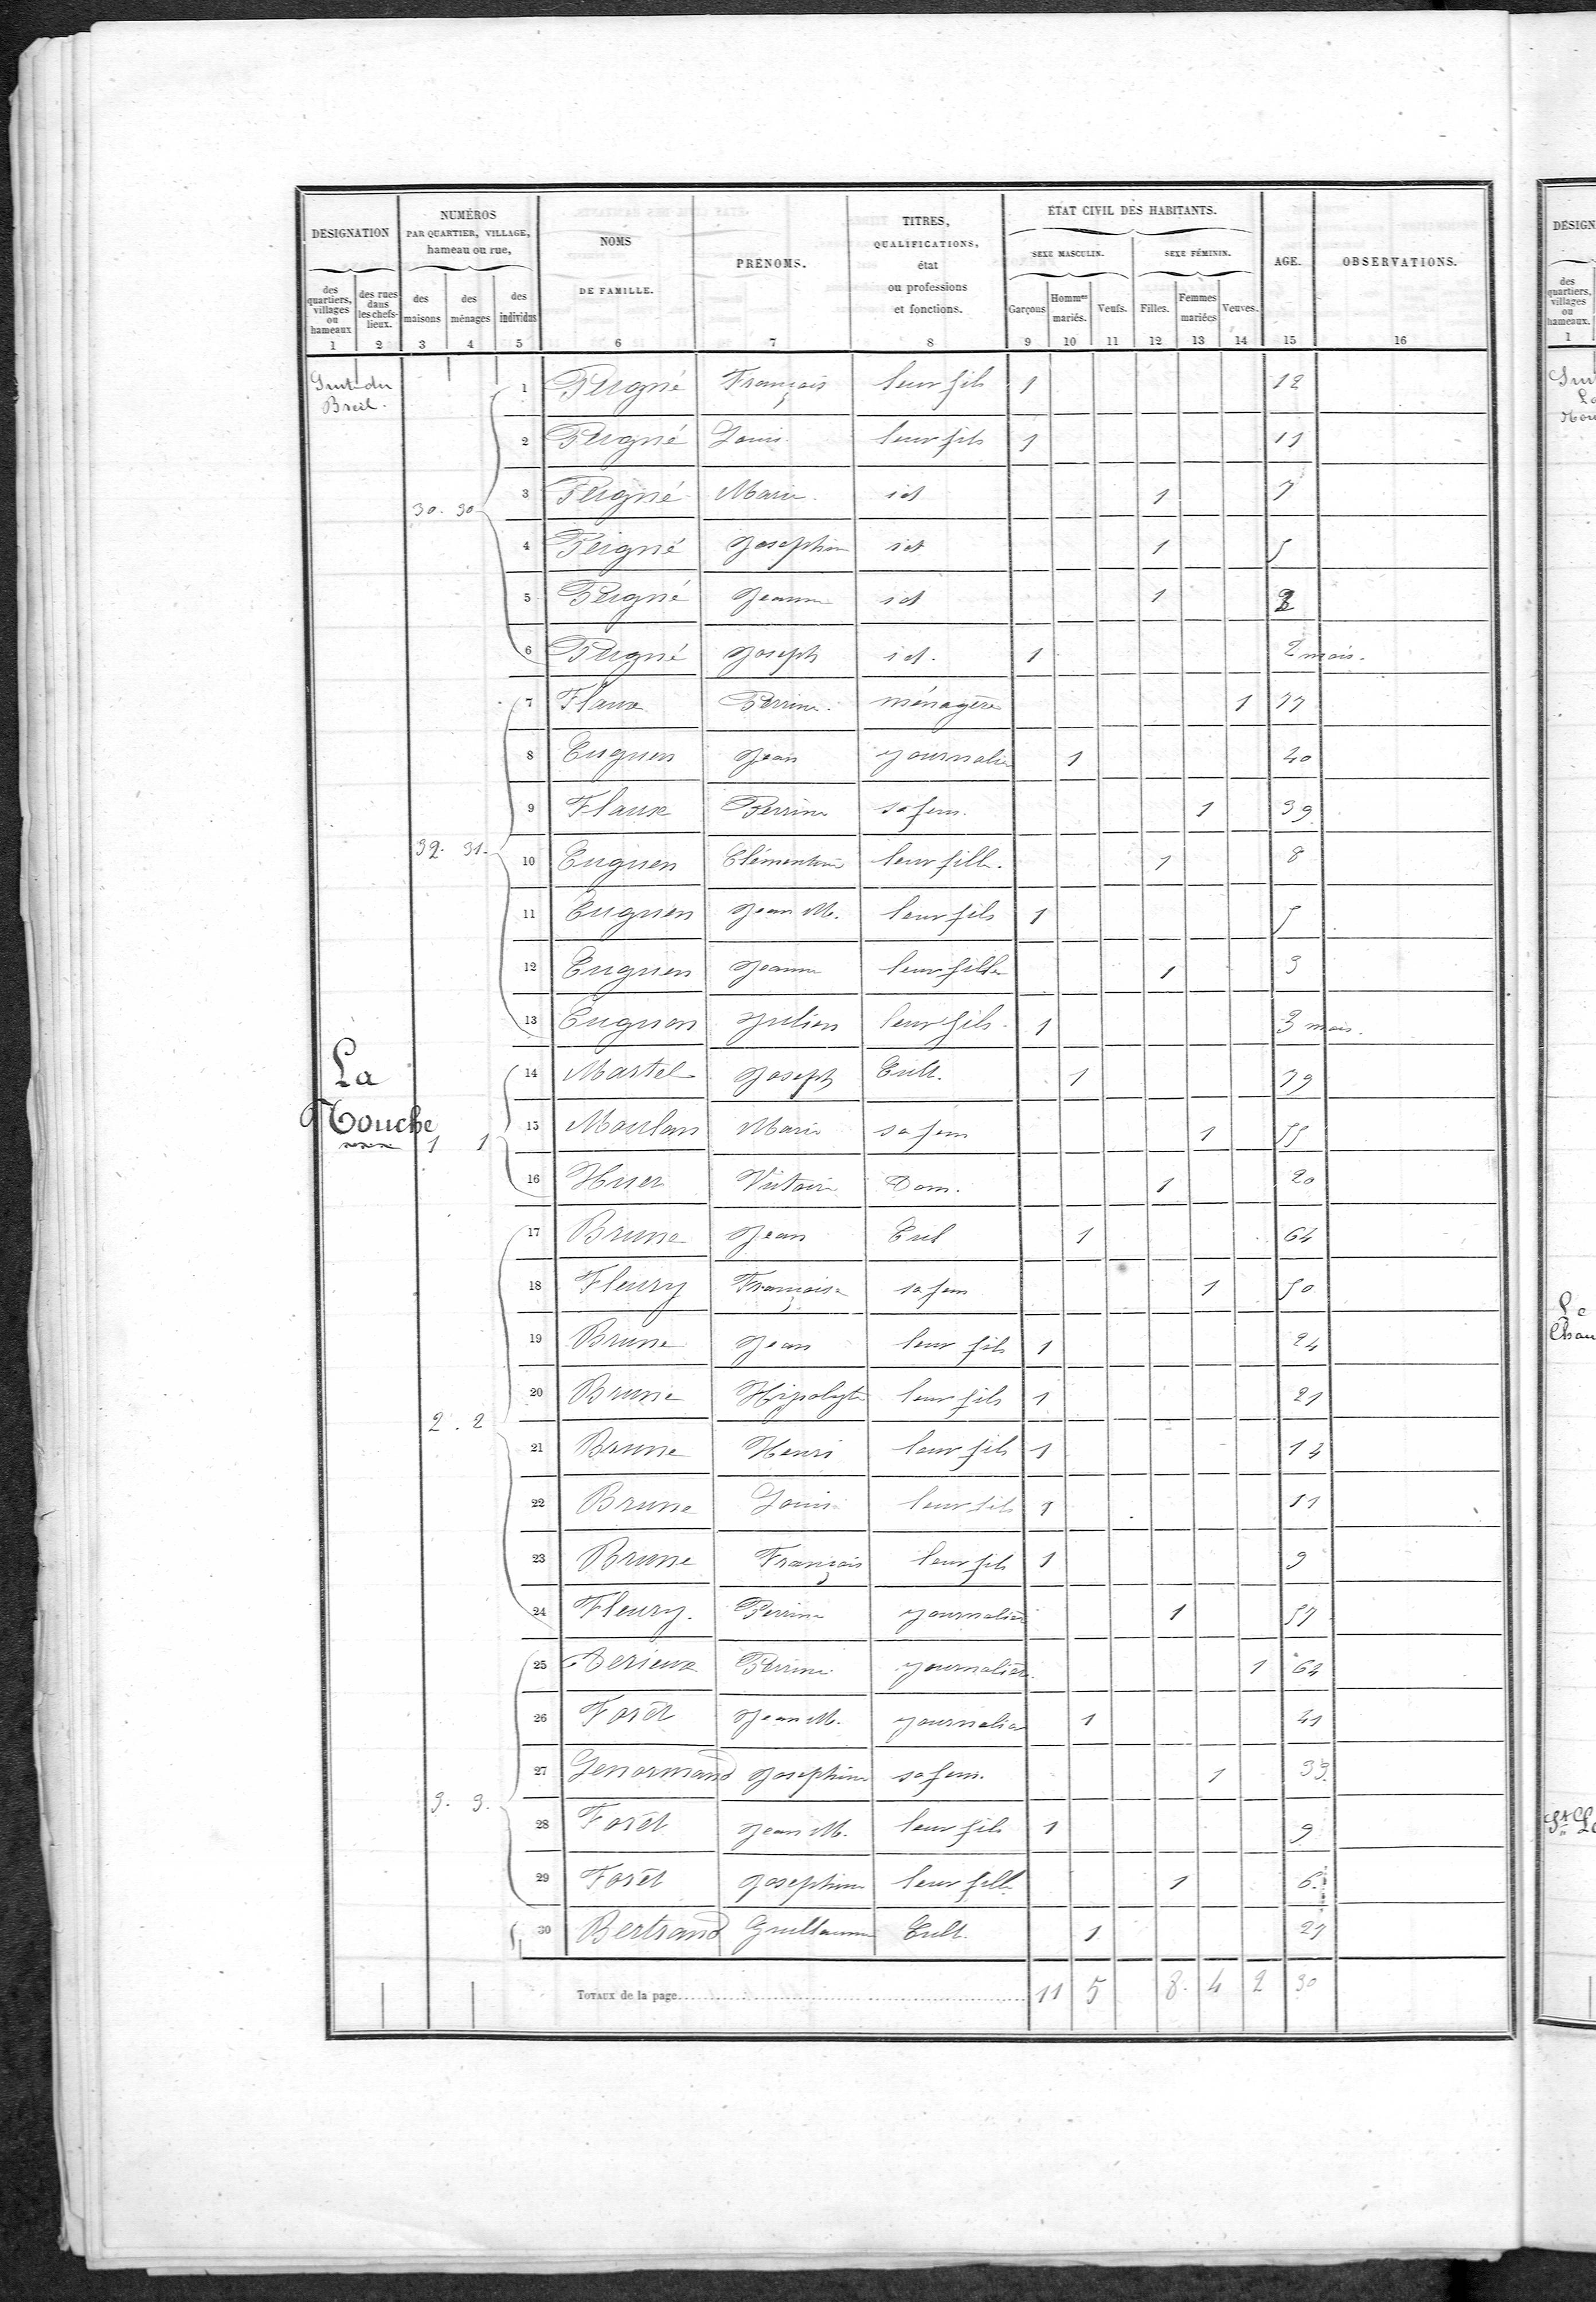 DESIGNATION
NUMÉROS PAR QUARTIER, VILLAGE, hameau ou rue,
NOMS DE FAMILLE.
PRÉNOMS.
TITRES, QUALIFICATIONS, état ou professions et fonctions.
ÉTAT CIVIL DES HABITANTS.
SEXE MASCULIN.
SEXE FÉMININ.
AGE.
OBSERVATIONS.
des quartiers, villages ou hameaux
des rues dans les chefs-lieux.
des maisons
des ménages
des individus
Garçons
Hommes mariés.
Veufs.
Filles.
Femmes mariées
Veuves.
1 2 3 4 5 6 7 8 9 10 11 12 13 14 15 16
Suite du Breil.
1 Peigné François leur fils 1 12
2 Peigné Louis leur fils 1 11
30. 30
3 Peigné Marie id 1 7
4 Peigné Josephine id 1 5
5 Peigné Jeanne id 1 2
6 Peigné Joseph id. 1 2 mois.
7 Flaux Perrine ménagère 1 77
8 Eugnen Jean journalier 1 40
9 Flaux Perrine sa fem. 1 39
32. 31.
10 Eugnen Clémentine leur fille. 1 8
11 Eugnen Jean M. leur fils 1 5
12 Eugnen Jeanne leur fille 1 3
13 Eugnen Julien leur fils 1 3 mois.
La Touche
14 Martel Joseph Cult. 1 79
1 1
15 Moulans Marie sa fem 1 55
16 Huer Victoire Dom. 1 20
17 Brune Jean Cul 1 64
18 Fleury Françoise sa fem 1 50
19 Brune Jean leur fils 1 24
20 Brune Hipolyte leur fils 1 21
2. 2
21 Brune Henri leur fils 1 14
22 Brune Louis leur fils 1 11
23 Brune François leur fils 1 9
24 Fleury. Perrine journalière 1 57
25 Derieux Perrine journalière. 1 64
26 Forêt Jean M. journalier 1 41
27 Lenormand Josephine sa fem. 1 39.
3. 3.
28 Forêt Jean M. leur fils 1 9
29 Forêt Josephine leur fille 1 6.
30 Bertrand Guillaume Cult. 1 27
TOTAUX de la page 11 5 8. 4 2 30